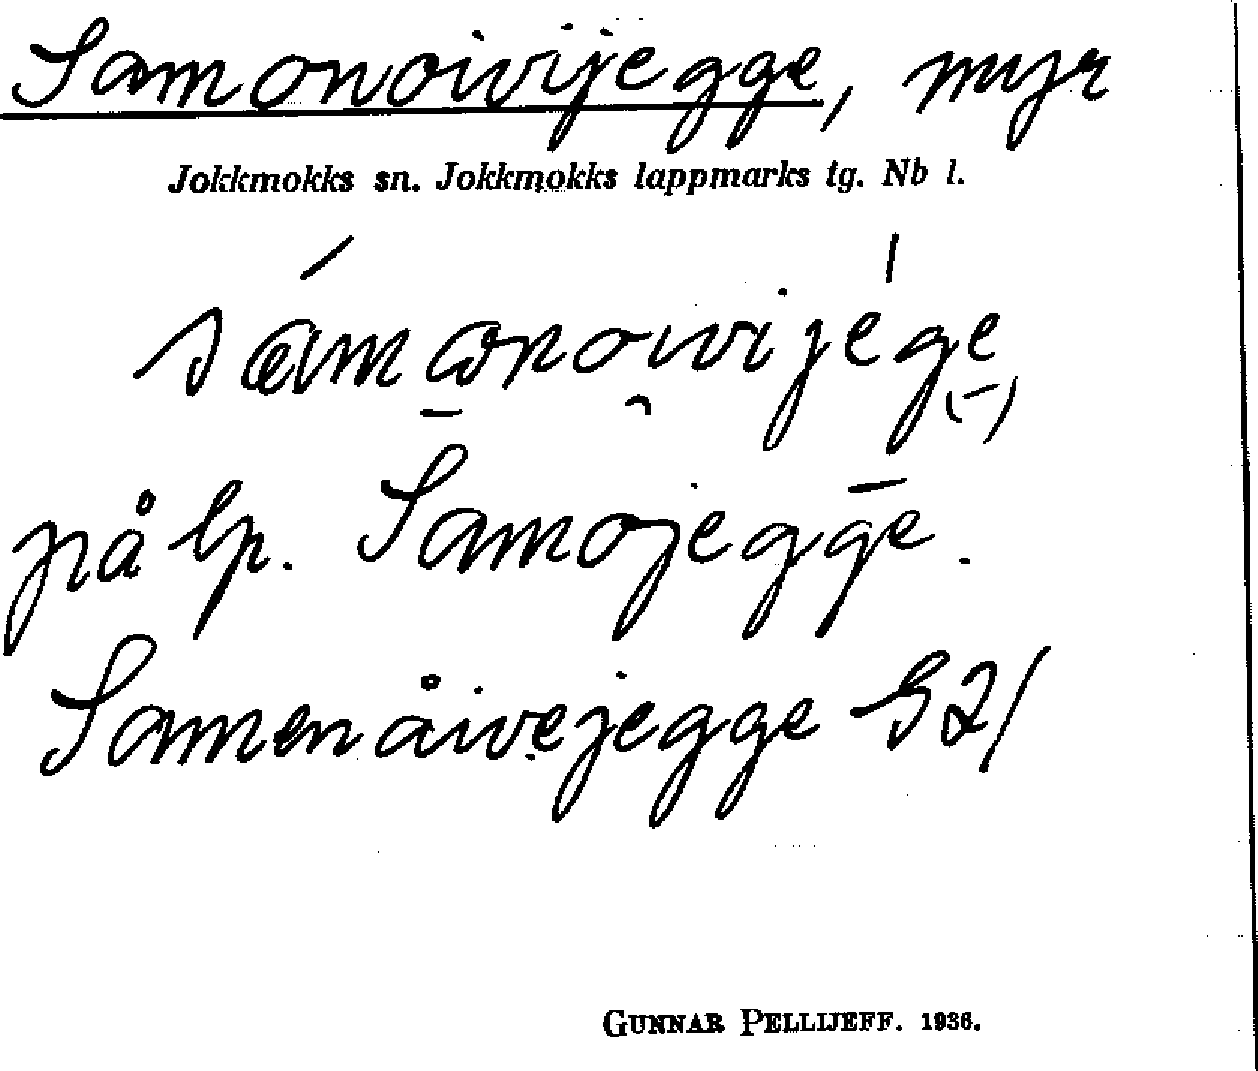 Samonoivijegge, myr
Jokkmokks sn. Jokkmokks lappmarks tg. Nb l.
sámanoivijége
(-)
på lp. Samojegge.
Samenåivejegge 52/
GUNNAR PELLIJEFF. 1936.